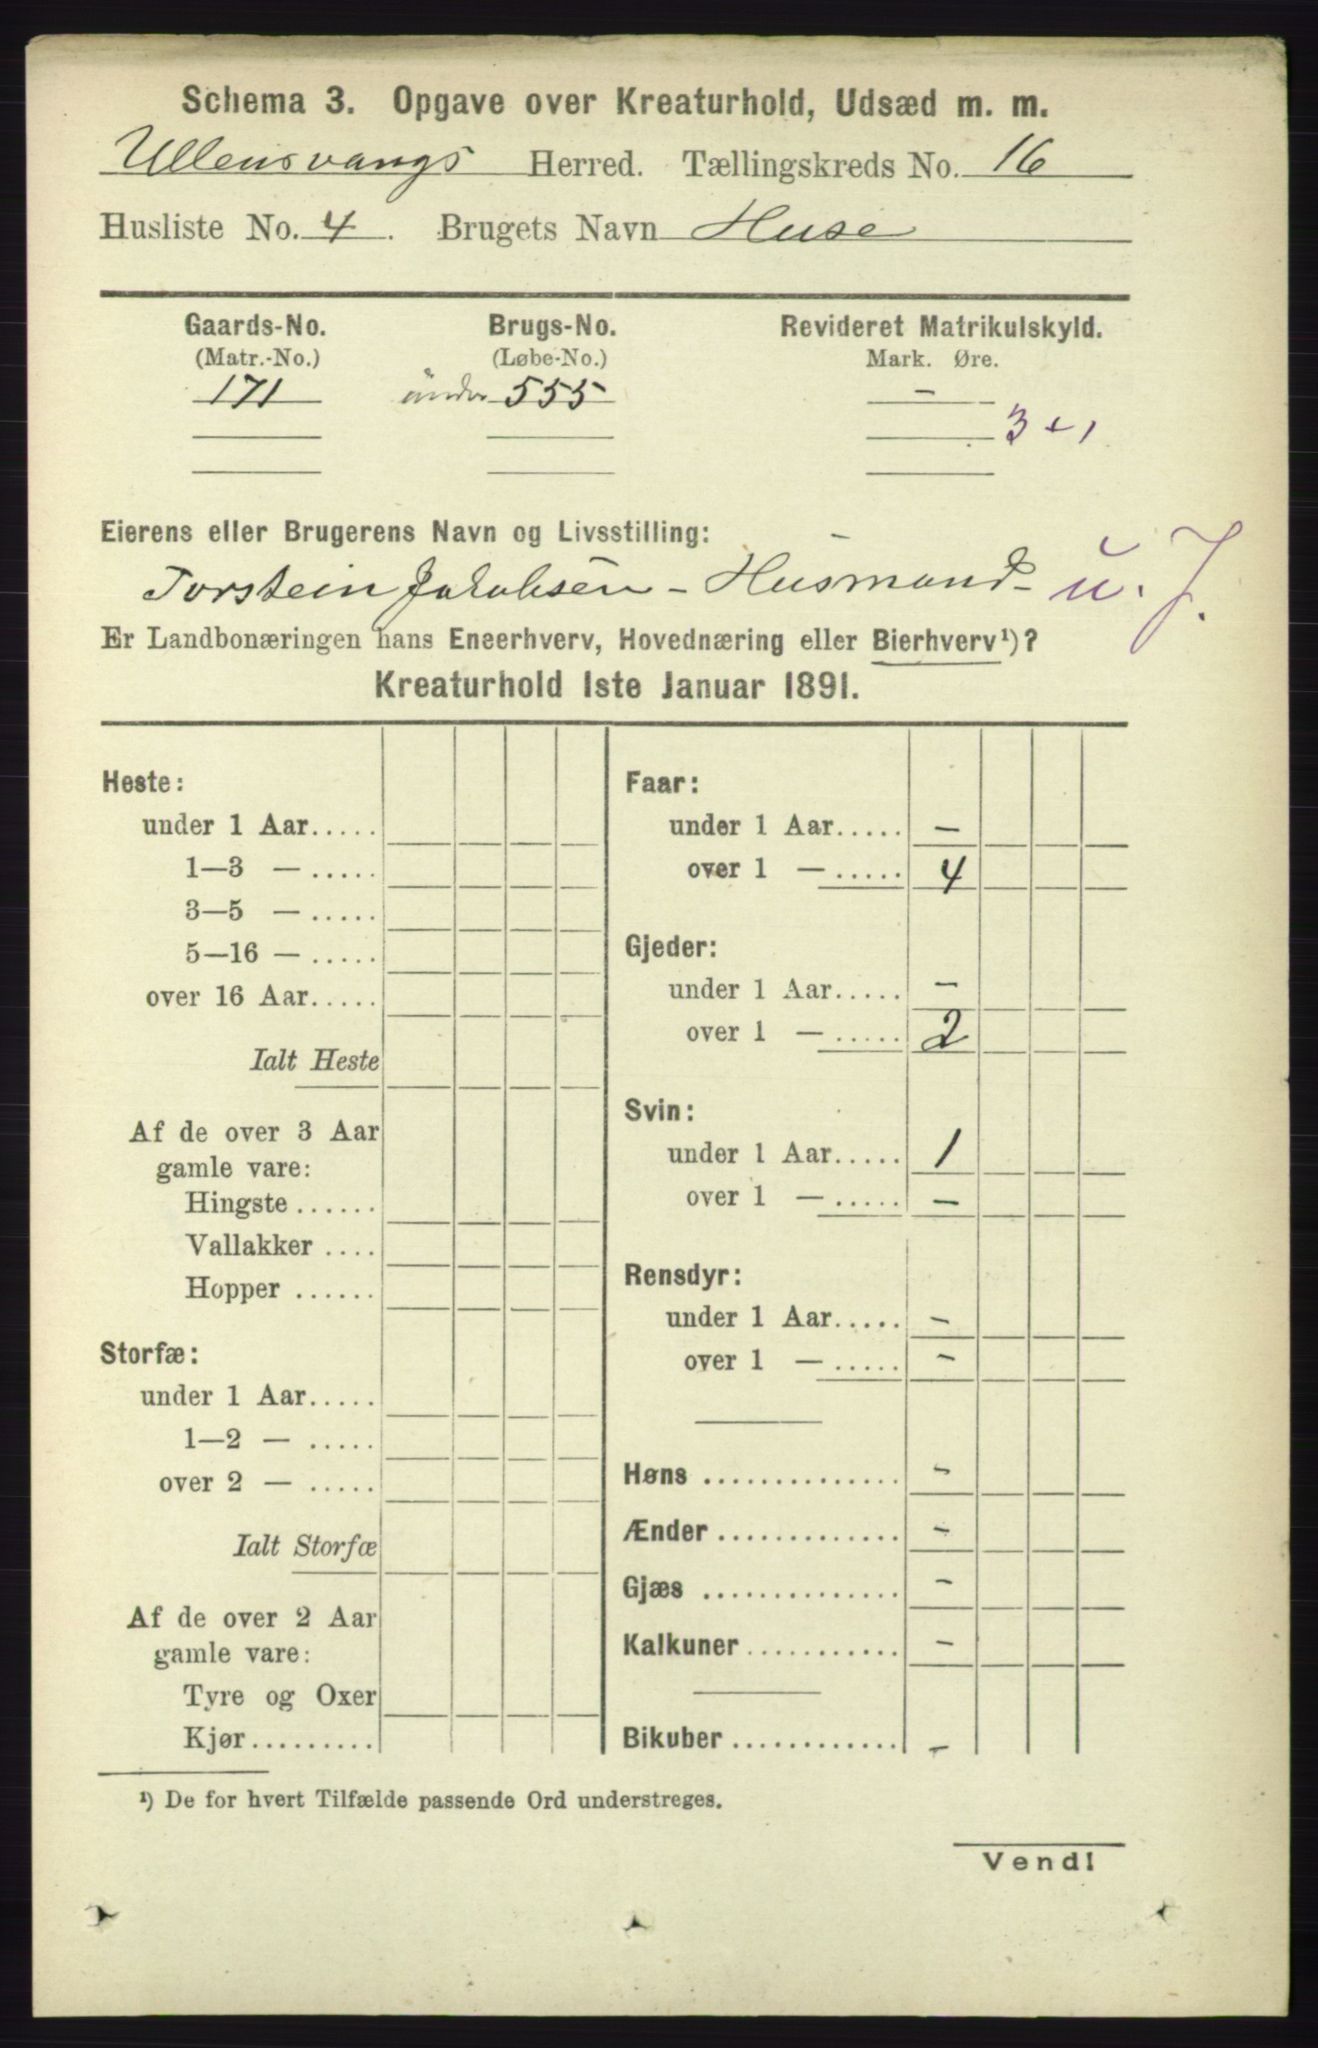 Schema 3. Opgave over Kreaturhold, Udsæd m. m.
Ullensvangs Herred. Tællingskreds No. 16
Husliste No. 4. Brugets Navn Huse
Gaards-No. Brugs-No. Revideret Matrikulskyld.
(Matr.-No.) (Løbe-No.) Mark. Øre.
171 under 555 –
3 + 1
Eierens eller Brugerens Navn og Livsstilling:
Torstein Jakobsen - Husmand - u. J.
Er Landbonæringen hans Eneerhverv, Hovednæring eller Bierhverv¹)?
Kreaturhold 1ste Januar 1891.
Heste:
under 1 Aar.....
1—3 — .....
3—5 — .....
5—16 — .....
over 16 Aar.....
Ialt Heste
Af de over 3 Aar
gamle vare:
Hingste ......
Vallakker ....
Hopper ......
Storfæ:
under 1 Aar.....
1—2 — .....
over 2 — .....
Ialt Storfæ
Af de over 2 Aar
gamle vare:
Tyre og Oxer
Kjør.........
Faar:
under 1 Aar..... –
over 1 — ..... 4
Gjeder:
under 1 Aar..... –
over 1 — ..... 2
Svin:
under 1 Aar..... 1
over 1 — ..... –
Rensdyr:
under 1 Aar..... –
over 1 — ..... –
Høns .............. –
Ænder ............. –
Gjæs .............. –
Kalkuner ........... –
Bikuber ............ –
¹) De for hvert Tilfælde passende Ord understreges.
Vend!